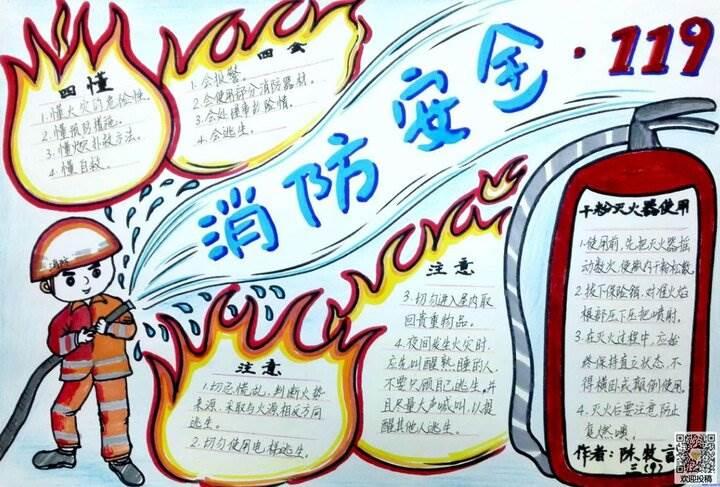 消防安全·119
四懂
1.懂火灾的危险性。
2.懂预防措施。
3.懂火灾扑救方法。
4.懂自救。
四会
1.会报警。
2.会使用部分消防器材。
3.会处理事故险情。
4.会逃生。
消防
注意
1.切忌慌乱,判断火势
来源,采取与火源相反方向
逃生。
2.切勿使用电梯逃生。
注意
3.切勿进入屋内取
回贵重物品。
4.夜间发生火灾时,
应先叫醒熟睡的人,
不要只顾自己逃生,并
且尽量大声喊叫,以提
醒其他人逃生。
干粉灭火器使用
1.使用前,先把灭火器摇
动数次,使瓶内干粉松散。
2.拔下保险销,对准火焰
根部压下压把喷射。
3.在灭火过程中,应始
终保持直立状态,不
得横卧或颠倒使用。
4.灭火后要注意防止
复燃噢。
作者:陈牧言
三(9)
欢迎投稿